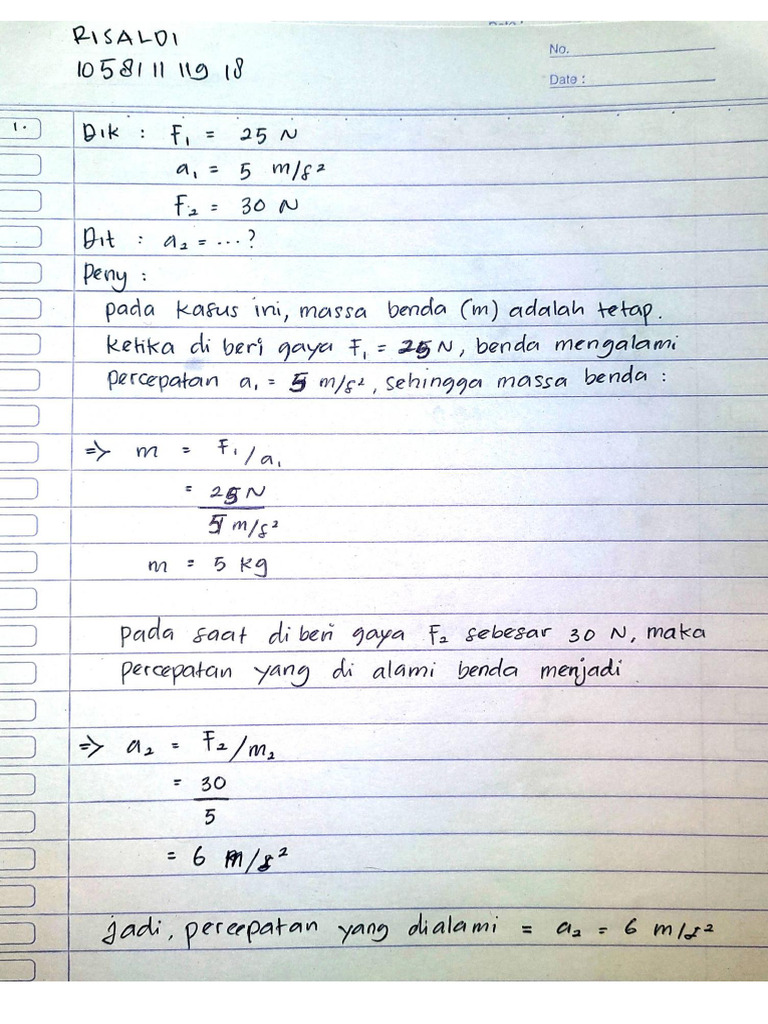 RISALDI
No.
105811111918
Date :
1.
Dik : F₁ = 25 N
a₁ = 5 m/s²
F₂ = 30 N
Dit : a₂ = ...?
Peny :
pada kasus ini, massa benda (m) adalah tetap.
ketika di beri gaya F₁ = 25 N, benda mengalami
percepatan a₁ = 5 m/s², sehingga massa benda :
=> m = F₁/a₁
= 25 N
5 m/s²
m = 5 kg
pada saat di beri gaya F₂ sebesar 30 N, maka
percepatan yang di alami benda menjadi
=> a₂ = F₂/m₂
= 30
5
= 6 m/s²
jadi, percepatan yang dialami = a₂ = 6 m/s²